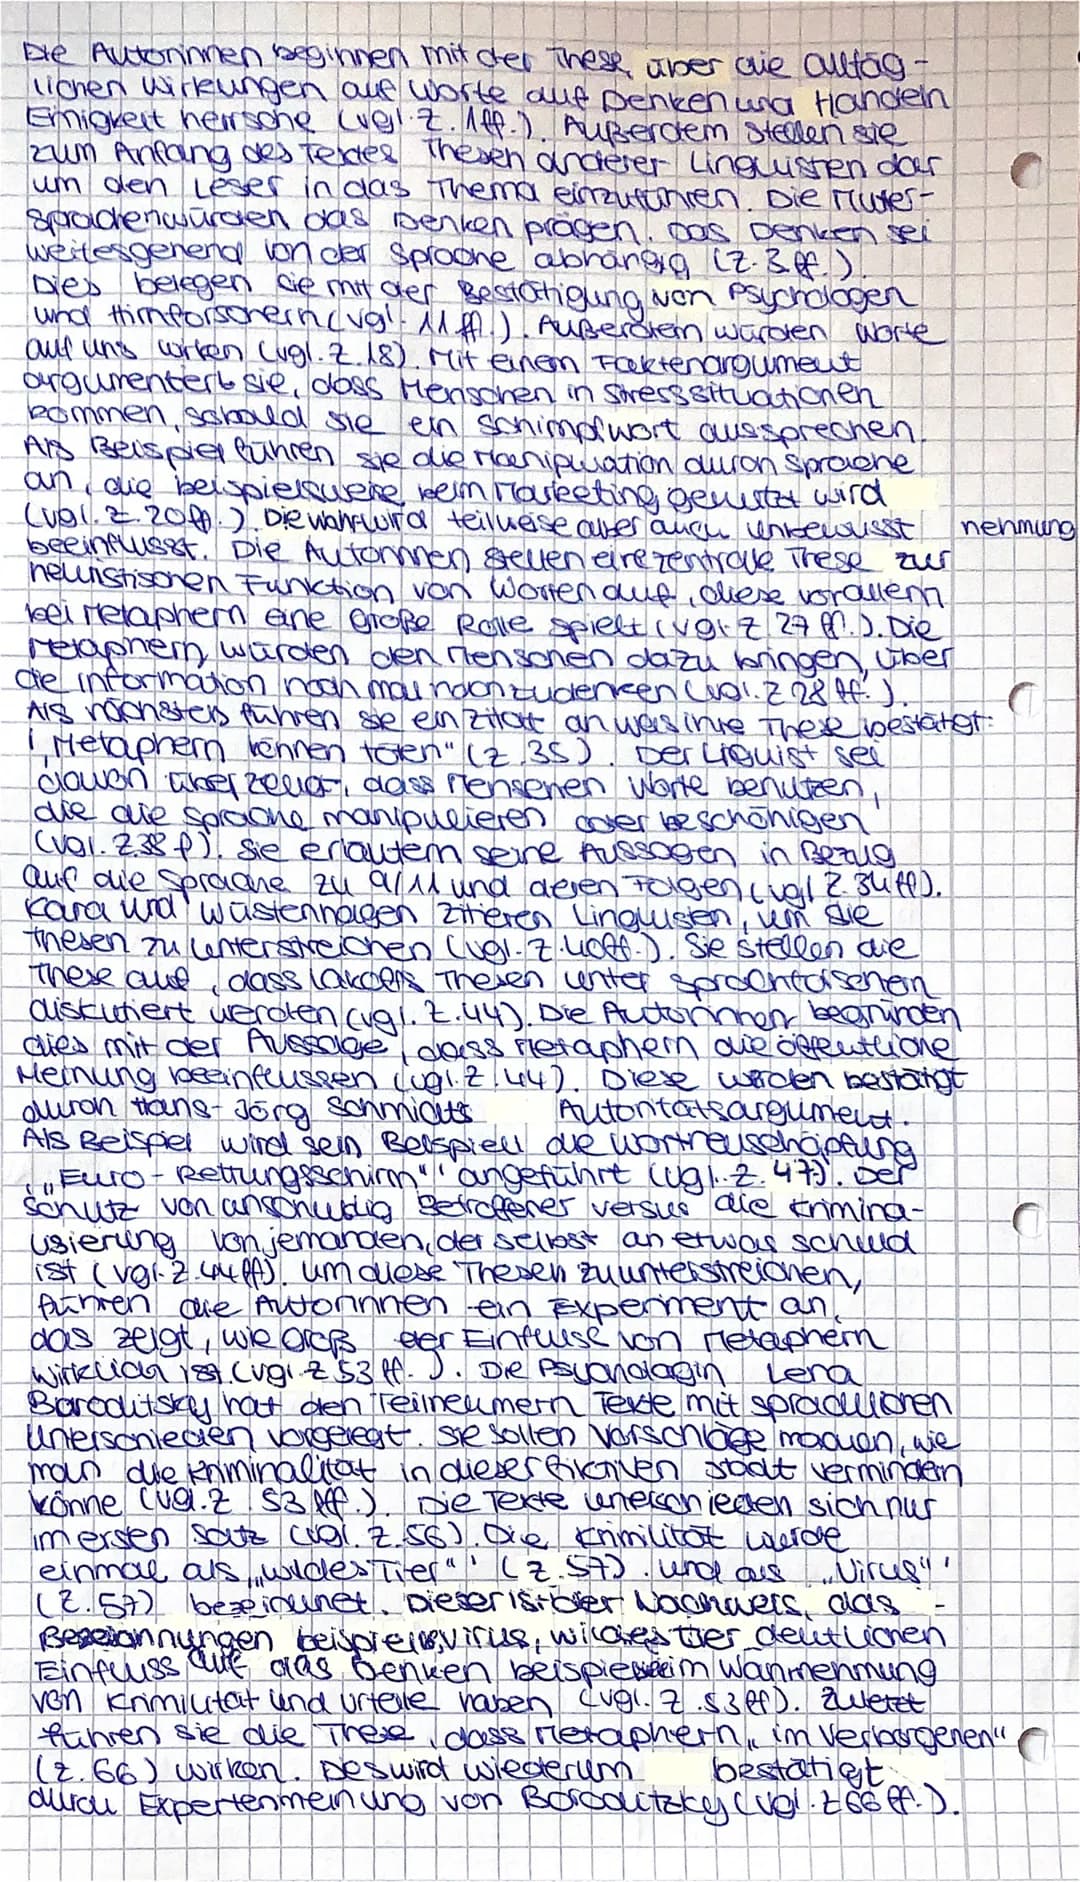 Die Autorinnen beginnen mit der These, über die alltäg-
lichen Wirkungen auf Worte auf Denken und Handeln
Einigkeit herrsche (vgl. Z. 1ff.). Außerdem stellen sie
zum Anfang des Textes Thesen anderer Linguisten dar
um den Leser in das Thema einzuführen. Die Mutter-
sprachenwürden das Denken prägen. Das Denken sei
weitesgehend von der Sprache abhängig (Z. 3 ff.).
Dies belegen sie mit der Bestätigung von Psychologen
und Hirnforschern (vgl. 11 ff.). Außerdem würden Worte
auf uns wirken (vgl. Z. 18). Mit einem Faktenargument
argumentiert sie, dass Menschen in Stresssituationen
kommen, sobald sie ein Schimpfwort aussprechen.
Als Beispiel führen sie die Manipulation durch Sprache
an, die beispielsweise beim Marketing genutzt wird
(vgl. Z. 20ff.). Die wahrwird teilweise aber auch unbewusst nehmung
beeinflusst. Die Autorinnen stellen eine zentrale These zur
heuristischen Funktion von Worten auf, diese vorallem
bei Metaphern eine große Rolle spielt (vgl. Z. 27 ff.). Die
Metaphern würden den Menschen dazu bringen, über
die Information noch mal nachzudenken (vgl. Z 28 ff.).
Als nächstes führen sie ein Zitat an was ihre These bestätgt:
„Metaphern können töten" (Z. 35). Der Liguist sei
davon überzeugt, dass Menschen Worte benutzen,
die die Sprache manipulieren oder beschönigen
(vgl. Z. 38 f). Sie erläutern seine Aussagen in Bezug
auf die Sprache zu 9/11 und deren Folgen (vgl Z. 34 ff).
Kara und Wüstenhagen zitieren Linguisten, um die
Thesen zu unterstreichen (vgl. Z. 40ff.). Sie stellen die
These auf, dass Lakoffs Thesen unter Sprachforschern
diskutiert werden (vgl. Z. 44). Die Autorinnen begründen
dies mit der Aussage, dass Metaphern die öffentliche
Meinung beeinflussen (vgl. Z. 44). Diese werden bestätigt
durch Hans-Jörg Schmidts Autoritätsargument.
Als Beispiel wird sein Beispiel die Wortneuschöpfung
„Euro-Rettungsschirm"' angeführt (vgl. Z. 47). Der
Schutz von unschuldig Betroffener versus die Krimina-
lisierung von jemanden, der selbst an etwas schuld
ist (vgl. Z. 44 ff). Um diese Thesen zu unterstreichen,
führen die Autorinnen ein Experiment an,
das zeigt, wie groß der Einfluss von Metaphern
wirklich ist (vgl. Z 53 ff.). Die Psychologin Lena
Boroditsky hat den Teilnehmern Texte mit sprachlichen
Unterschieden vorgelegt. Sie sollen Vorschläge machen, wie
man die Kriminalität in dieser fiktiven Stadt vermindern
könne (vgl. Z. 53 ff.). Die Texte unterschieden sich nur
im ersten Satz (vgl. Z. 56). Die Krimilität werde
einmal als „wildes Tier"' (Z. 57) und als „Virus"'
(Z. 57) bezeichnet. Dieser ist der Nachweis, das -
Bezeichnungen beispiels, Virus, wildes Tier deutlichen
Einfluss auf das Denken beispiels beim Wahrnehmung
von Krimilität und Urteile haben (vgl. Z. 53 ff). Zuletzt
führen sie die These, dass Metaphern „im Verborgenen"
(Z. 66) wirken. Des wird wiederum bestätigt
durch Expertenmeinung von Boroditzky (vgl. Z 66 ff.).